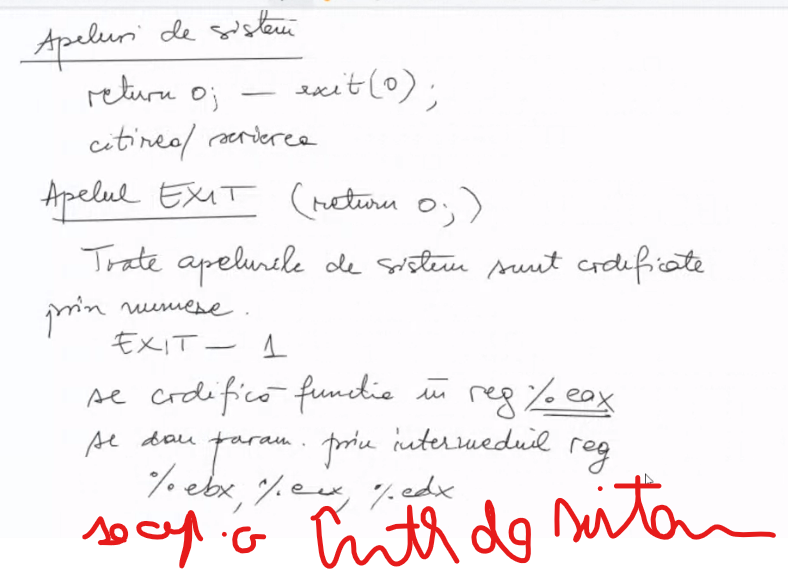 Apeluri de sistem
return 0; — exit(0);
citirea/ scrierea
Apelul EXIT (return 0;)
Toate apelurile de sistem sunt codificate
prin numere.
EXIT — 1
se codifică functie în reg %eax
se dau param. prin intermediul reg
%ebx, %ecx, %edx
de sistem